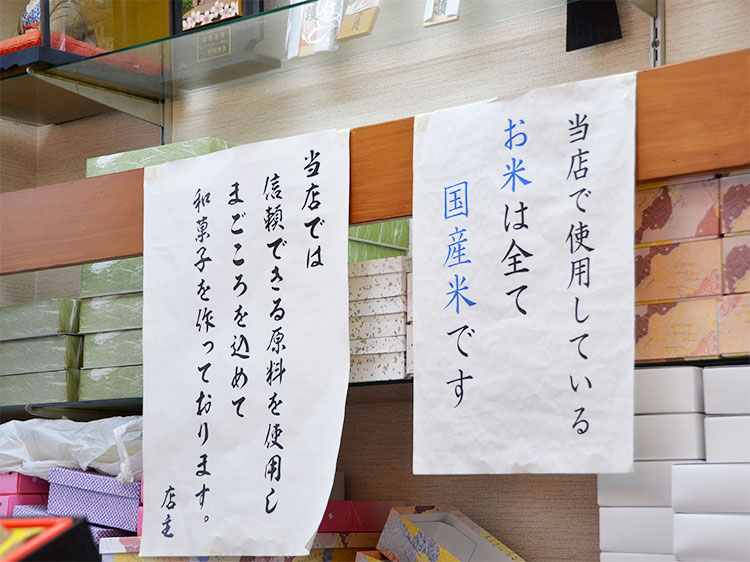 当店で使用している
お米は全て
国産米です
当店では
信頼できる原料を使用し
まごころを込めて
和菓子を作っております。
店主